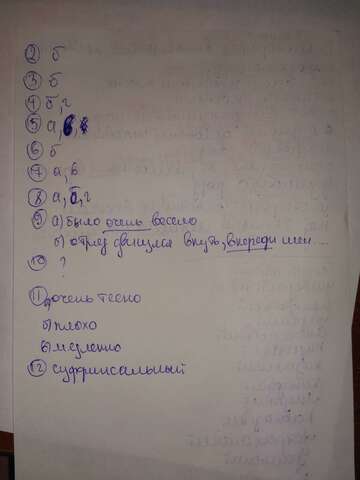 2 б
3 б
4 б, г
5 а, в,
6 б
7 а, в
8 а, б, г
9 а) было очень весело
б) отряд двинулся в путь, впереди шел....
10 ?
11 а) очень тесно
б) плохо
в) медленно
12 суффиксальный